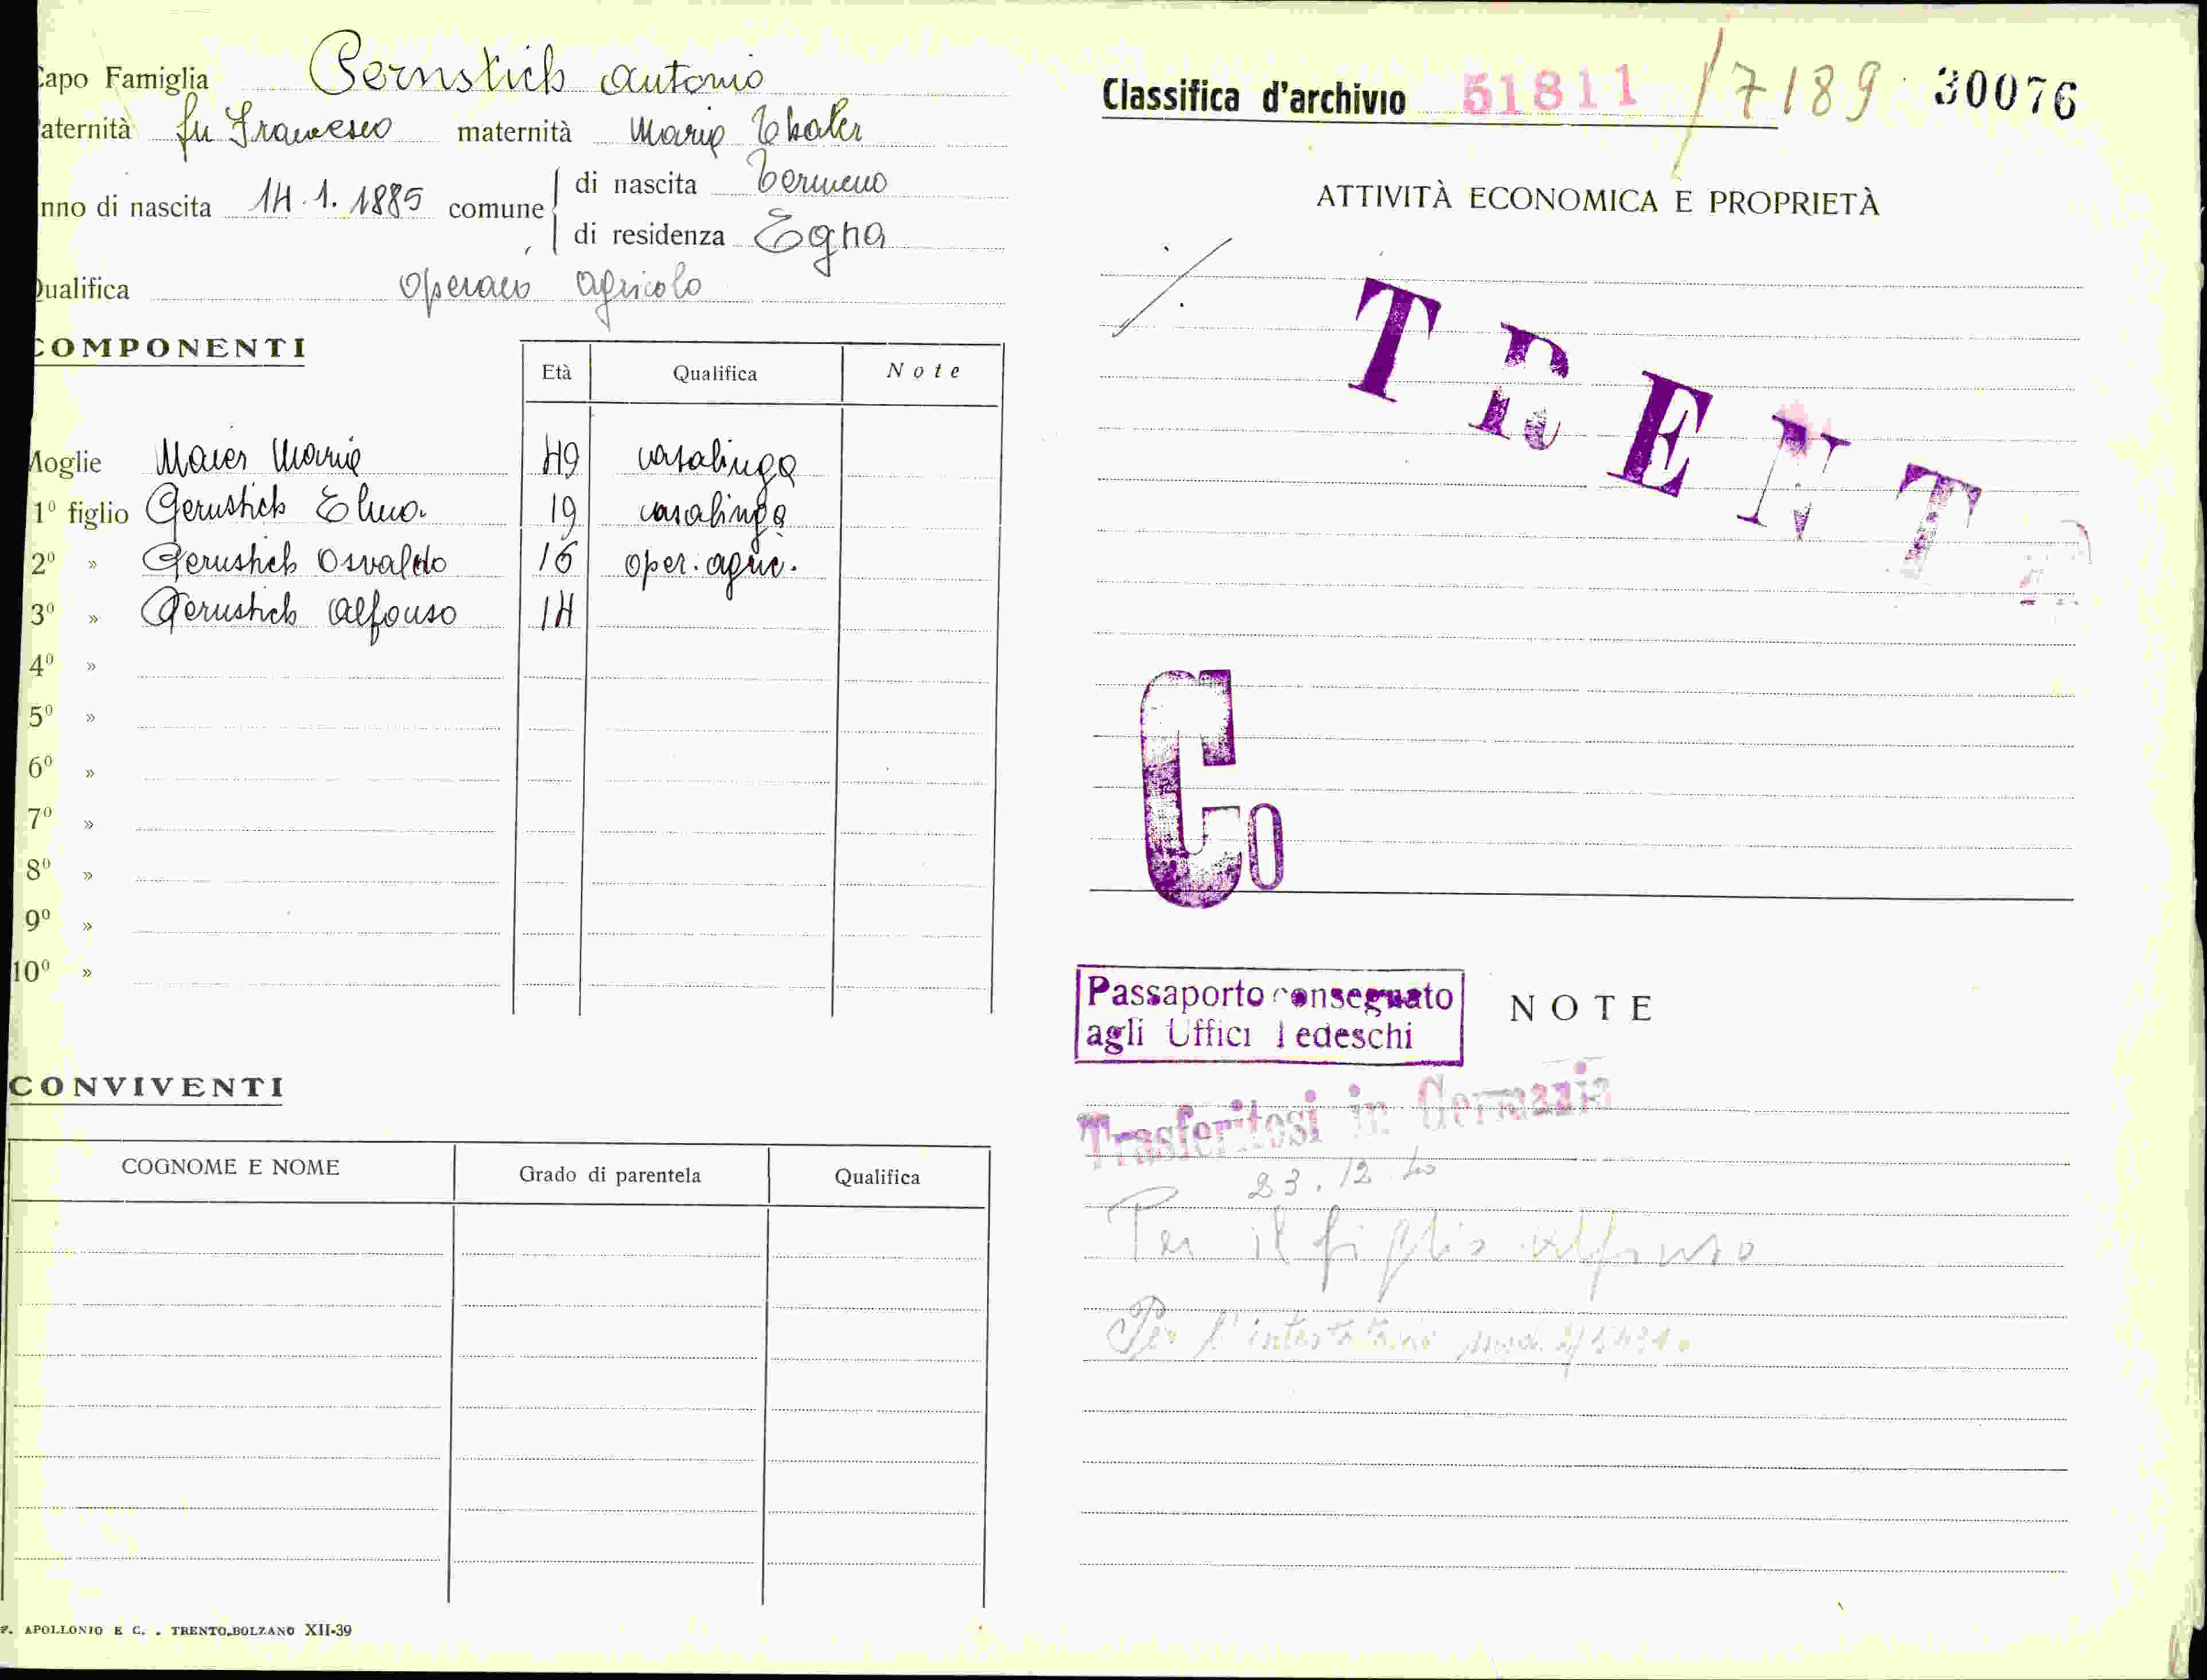 Capo Famiglia Pernstich Antonio
Paternità fu Francesco maternità Maria Thaler
Anno di nascita 14.1.1885 comune di nascita Termeno
di residenza Egna
Qualifica operaio agricolo
COMPONENTI
Età Qualifica Note
Moglie Maier Maria 49 casalinga
1º figlio Pernstich Elma. 19 casalinga
2º » Pernstich Osvaldo 16 oper. agric.
3º » Pernstich Alfonso 14
4º »
5º »
6º »
7º »
8º »
9º »
10º »
CONVIVENTI
COGNOME E NOME Grado di parentela Qualifica
F. APOLLONIO E C. . TRENTO-BOLZANO XII-39
Classifica d'archivio 51811 /7189 30076
ATTIVITÀ ECONOMICA E PROPRIETÀ
TRENTO
Co
Passaporto consegnato
agli Uffici Tedeschi
NOTE
Trasferitosi in Germania
23.12.40
Per il figlio Alfonso
Per l'intestatario